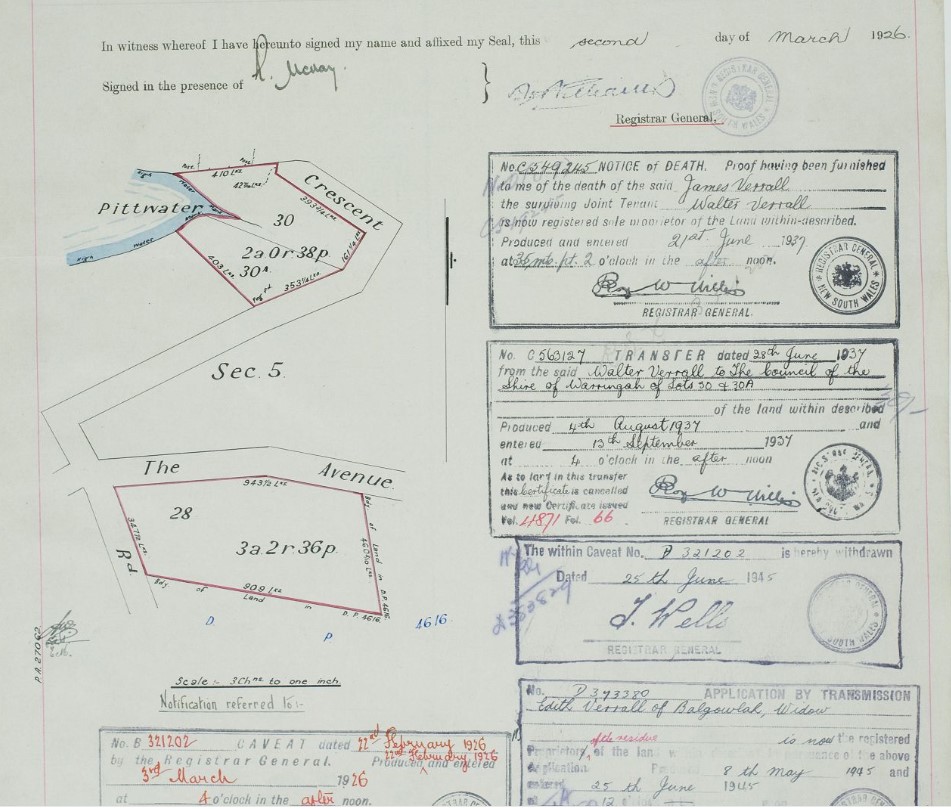 In witness whereof I have hereunto signed my name and affixed my Seal, this second day of March 1926.
Signed in the presence of
Registrar General,
Pittwater
Crescent
410 Lks
30
2a 0r 38p
30A
403 Lks
353¼ Lks
Sec. 5.
The Avenue
943½ Lks
28
3a 2r 36p
Rd
909 Lks
Bdy of Land in D.P. 4616
Bdy of Land in D.P. 4616
D P 4616
Scale :- 3 Chns to one inch.
Notification referred to:-
No. B 321202 CAVEAT dated 22nd February 1926
by the Registrar General. Produced and entered
22nd February 1926
3rd March 1926
at 4 o'clock in the after noon.
No. C549245 NOTICE of DEATH. Proof having been furnished
to me of the death of the said James Verrall
the surviving Joint Tenant Walter Verrall
is now registered sole proprietor of the Land within-described.
Produced and entered 21st June 1937
at pt. 2 o'clock in the after noon.
REGISTRAR GENERAL.
REGISTRAR GENERAL
NEW SOUTH WALES
No. C563127 TRANSFER dated 28th June 1937
from the said Walter Verrall to The Council of the
Shire of Warringah of Lots 30 & 30A
of the land within described
Produced 4th August 1937 and
entered 13th September 1937
at 4 o'clock in the after noon
As to land in this transfer
this certificate is cancelled
and new Certificate issued
Vol. 4871 Fol. 66
REGISTRAR GENERAL
The within Caveat No. B 321202 is hereby withdrawn
Dated 25th June 1945
J. Wells
REGISTRAR GENERAL
SOUTH WALES
No. D393380 APPLICATION BY TRANSMISSION
Edith Verrall of Balgowlah, Widow
is now the registered
Proprietor of the residue of the land
of the above
Application 8th May 1945 and
entered 25th June 1945
12 o'clock in the